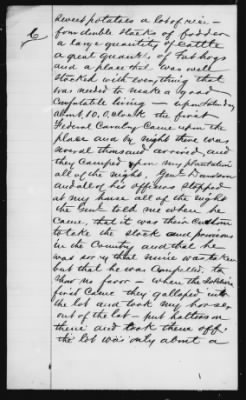 6
sweet potatoes a lot of rice –
four double stacks of fodder
a large quantity of cattle
a great quant. of Fat hogs
and a place that was well
stocked with everything that
was needed to make a good
comfortable living – upon Saturday
about, 10, O,clock the first
Federal Cavalry Came upon the
place and by night there was
several thousand arrived, and
they camped upon my plantation
all of the night. Genl
and all of his officers stopped
at my house all of the night
the Genl told me when he
came, that it was their Custom
to take the stock and provisions
in the Country and that he
was sorry that mine was taken
but that he was Compelled, to
show no favor – when the Soldiers
first Came they galloped into
the lot and took my horses
out of the lot – put halters on
them and took them off.
the lot was only about a